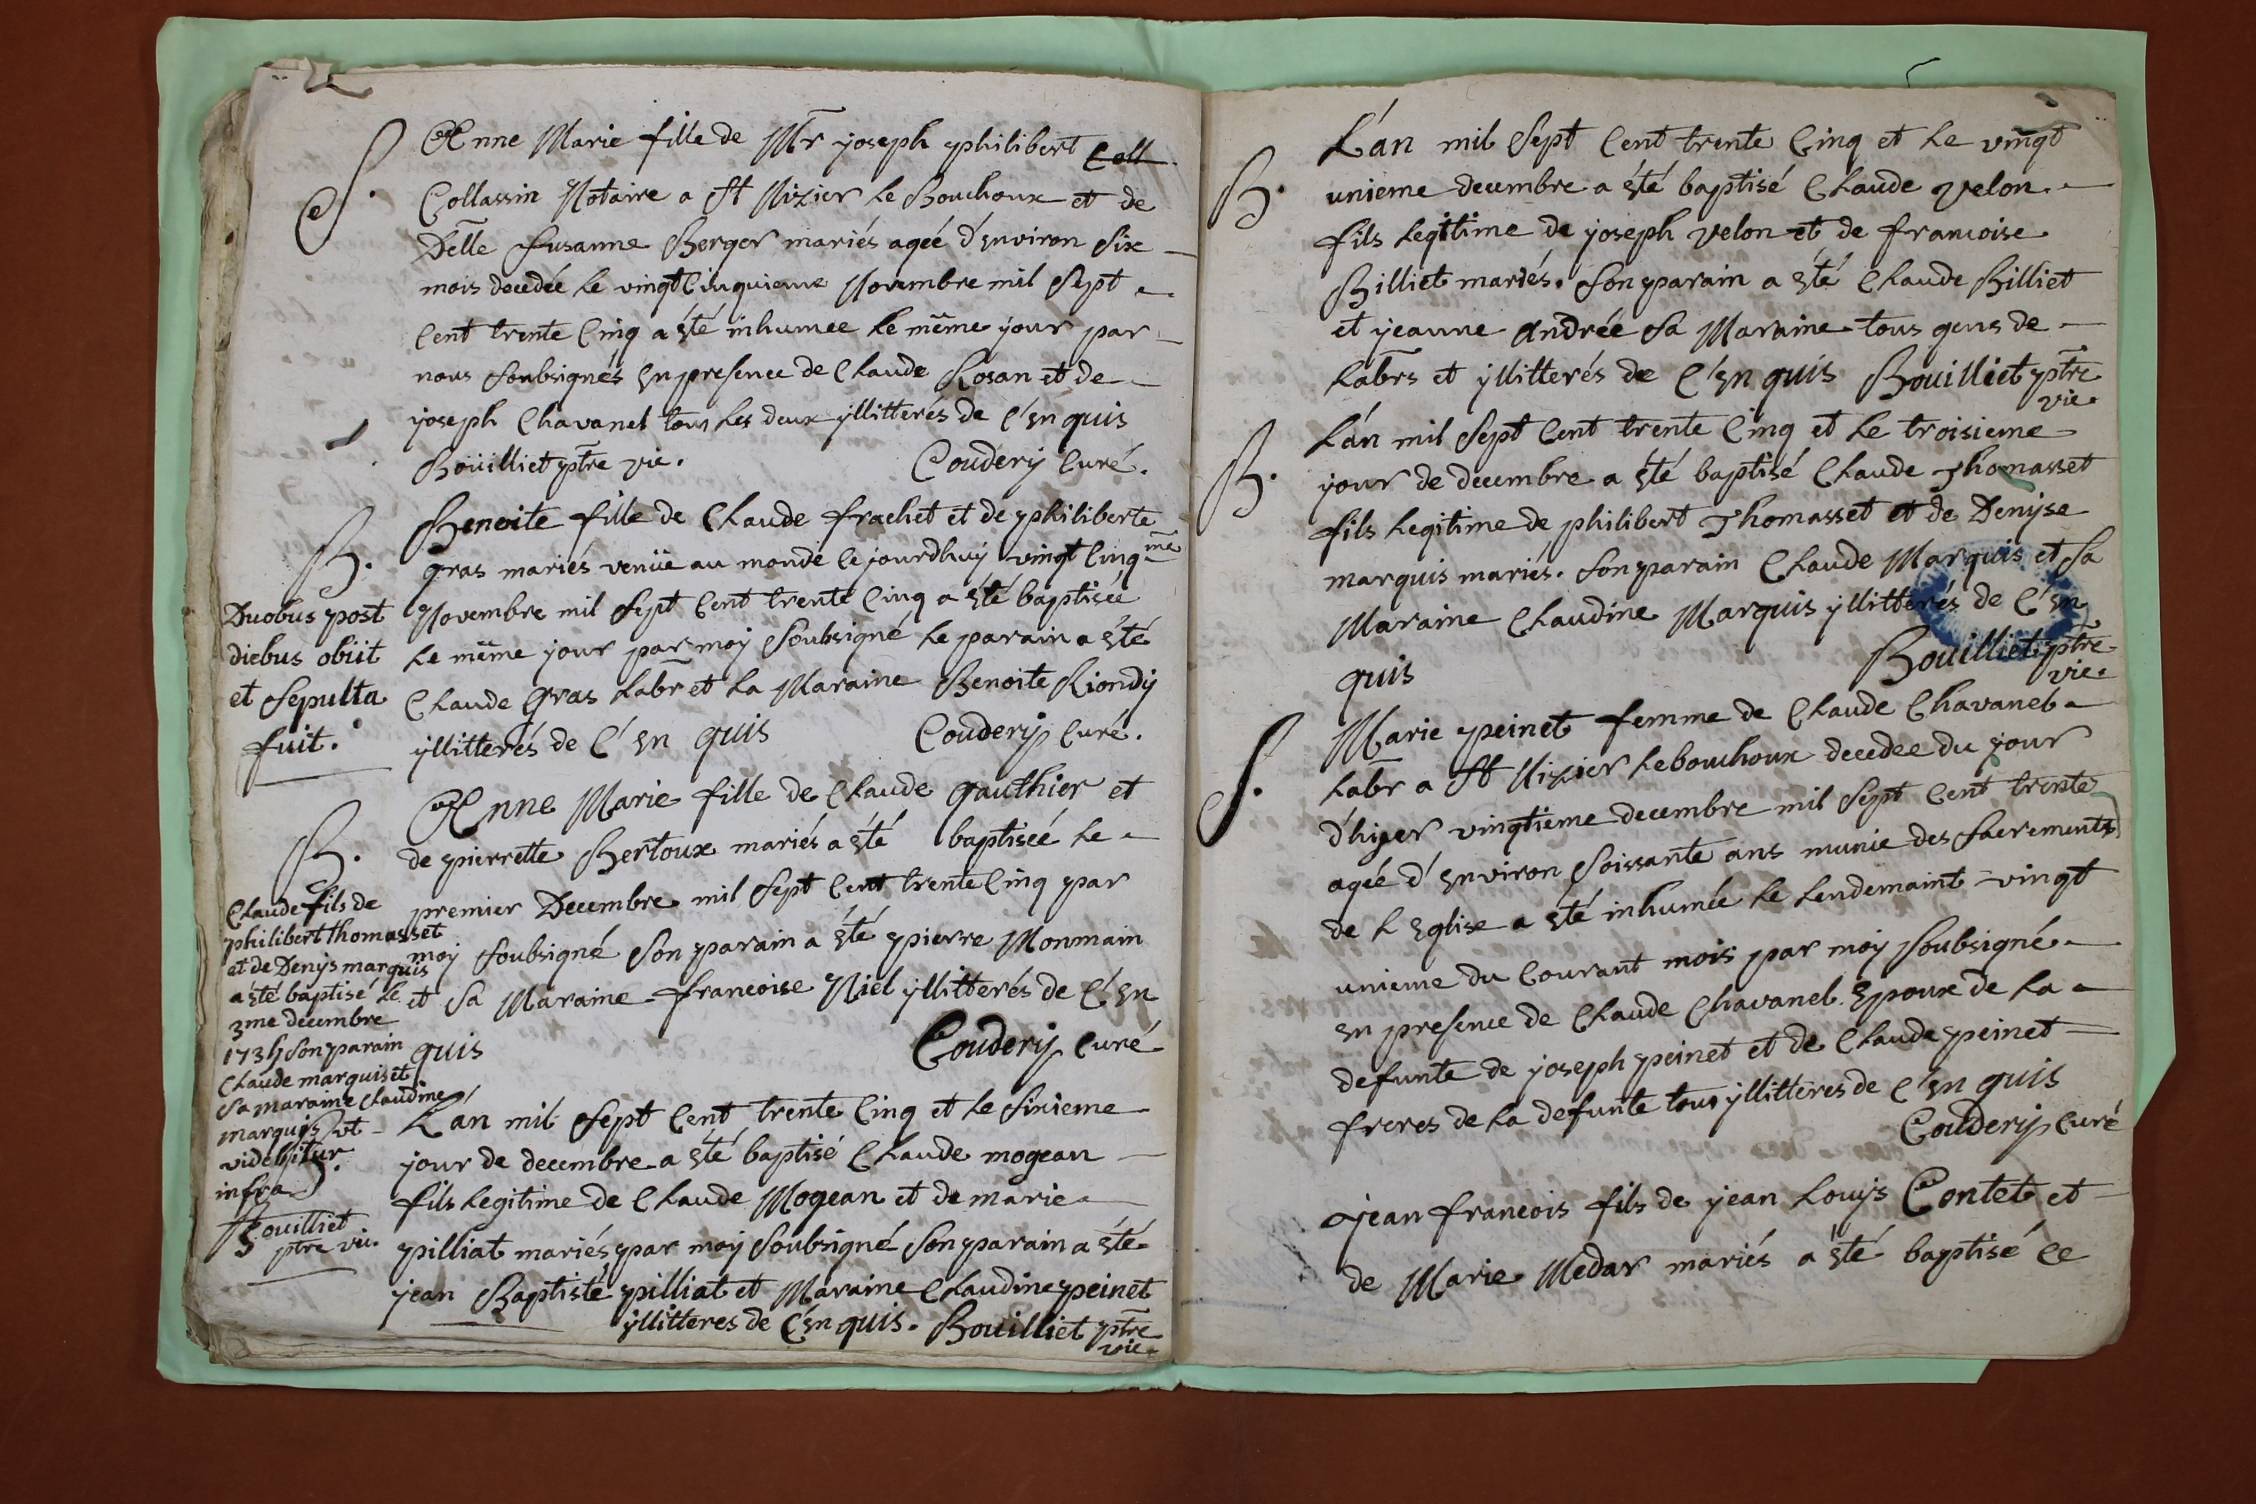 S.
Anne Marie fille de Mr joseph philibert Coll
Collassin Notaire a St Nizier le Bouchoux et de
Delle Susanne Berger mariés ageé d'environ six
mois decedée le vingt Cinquieme Novembre mil Sept
Cent trente Cinq a été inhumee le même jour par
nous Soubsignés en presence de Claude Rosan et de
joseph Chavanel tous les deux yllitterés de C'enquis
Boüilliet ptre vic. Coudery Curé.
B.
Benoite fille de Claude frachet et de philiberte
gras mariés venüe au monde Cejourdhuy vingt Cinqme
Novembre mil Sept Cent trente Cinq a été baptisée
le même jour par moy Soubsigné le parain a été
Claude Gras labr et la Maraine Benoite Riondy
yllitterés de C'en quis Coudery Curé.
Duobus post
diebus obiit
et Sepulta
fuit.
B.
Anne Marie fille de Claude gauthier et
de pierrette Bertoux mariés a été baptiseé le
premier Decembre mil Sept Cent trente Cinq par
moy Soubsigné Son parain a été pierre Monmain
et Sa Maraine francoise Niel yllitterés de C'en
quis Coudery Curé
Claude fils de
philibert thomasset
et de Denys marquis
a été baptisé le
3me decembre
1735 Son parain
Claude marquis et
Sa maraine Claudine
marquis vt
videbitur
infra
Bouilliet
ptre vic.
L'an mil Sept Cent trente Cinq et le Sixieme
jour de decembre a été baptisé Claude mogean
fils legitime de Claude Mogean et de marie
pilliat mariés par moy Soubsigné Son parain a été
jean Baptiste pilliat et Maraine Claudine peinet
yllitteres de C'enquis. Bouilliet ptre
vic.
B.
L'an mil Sept Cent trente Cinq et le vingt
unieme decembre a été baptisé Claude velon
fils legitime de joseph velon et de francoise
Billiet mariés. Son parain a été Claude Billiet
et jeanne Andrée Sa Maraine tous gens de
labrs et yllitterés de C'en quis Bouilliet ptre
vic.
B.
L'an mil Sept Cent trente Cinq et le troisieme
jour de decembre a été baptisé Claude Thomasset
fils legitime de philibert Thomasset et de Denyse
marquis mariés. Son parain Claude Marquis et Sa
Maraine Claudine Marquis yllitterés de C'en
quis Bouilliet ptre
vic.
S.
Marie peinet femme de Claude Chavanel
labr a St Nizier lebouchoux decedee du jour
d'hiyer vingtieme decembre mil Sept Cent trente
ageé d'environ Soissante ans munie des Sacrements
de l'Eglise a été inhumée le lendemaint vingt
unieme du Courant mois par moy Soubsigné
en presence de Claude Chavanel Epoux de la
defunte de joseph peinet et de Claude peinet
freres de la defunte tous yllitteres de C'en quis
Coudery Curé
jean francois fils de jean Louys Contet et
de Marie Medar mariés a été baptisé ce